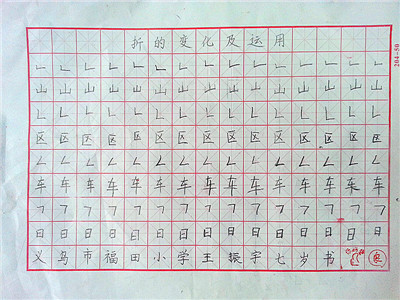 折的变化及运用
㇗㇗㇗㇗㇗㇗㇗㇗㇗㇗㇗㇗㇗㇗㇗
山山山山山山山山山山山山山山山
㇗㇗㇗㇗㇗㇗㇗㇗㇗㇗㇗㇗㇗㇗㇗
区区区区区区区区区区区区区区区
㇜㇜㇜㇜㇜㇜㇜㇜㇜㇜㇜㇜㇜㇜㇜
车车车车车车车车车车车车车车车
㇕㇕㇕㇕㇕㇕㇕㇕㇕㇕㇕㇕㇕㇕㇕
日日日日日日日日日日日日日日日
义乌市福田小学王振宇七岁书
204-50